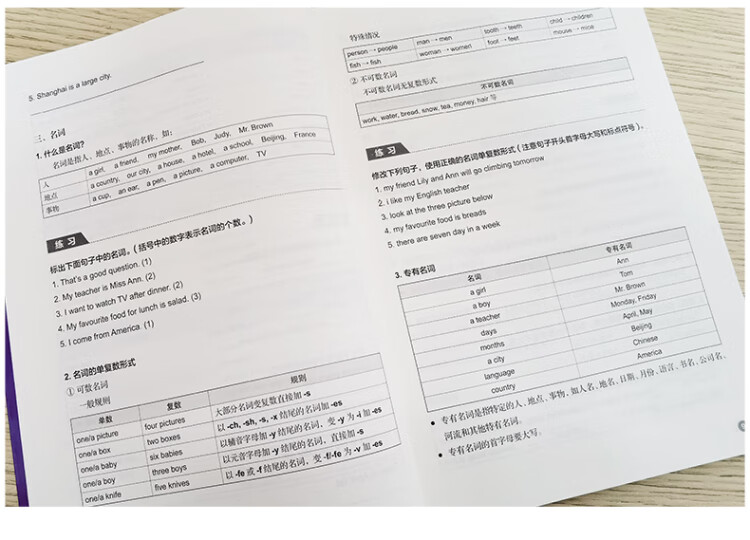 5. Shanghai is a large city.
三、名词
1. 什么是名词?
名词是指人、地点、事物的名称。如:
人 a girl, a friend, my mother, Bob, Judy, Mr. Brown
地点 a country, our city, a house, a hotel, a school, Beijing, France
事物 a cup, an ear, a pen, a picture, a computer, TV
练 习
标出下面句子中的名词。(括号中的数字表示名词的个数。)
1. That's a good question. (1)
2. My teacher is Miss Ann. (2)
3. I want to watch TV after dinner. (2)
4. My favourite food for lunch is salad. (3)
5. I come from America. (1)
2. 名词的单复数形式
① 可数名词
一般规则
单数 复数 规则
one/a picture four pictures 大部分名词变复数直接加 -s
one/a box two boxes 以 -ch, -sh, -s, -x 结尾的名词加 -es
one/a baby six babies 以辅音字母加 -y 结尾的名词,变 -y 为 -i 加 -es
one/a boy three boys 以元音字母加 -y 结尾的名词,直接加 -s
one/a knife five knives 以 -fe 或 -f 结尾的名词,变 -f/-fe 为 -v 加 -es
特殊情况
person → people man → men tooth → teeth child → children
fish → fish woman → women foot → feet mouse → mice
② 不可数名词
不可数名词无复数形式
不可数名词
work, water, bread, snow, tea, money, hair 等
练 习
修改下列句子,使用正确的名词单复数形式(注意句子开头首字母大写和标点符号)。
1. my friend Lily and Ann will go climbing tomorrow
2. i like my English teacher
3. look at the three picture below
4. my favourite food is breads
5. there are seven day in a week
3. 专有名词
名词 专有名词
a girl Ann
a boy Tom
a teacher Mr. Brown
days Monday, Friday
months April, May
a city Beijing
language Chinese
country America
● 专有名词是指特定的人、地点、事物,如人名、地名、日期、月份、语言、书名、公司名、
河流和其他特有名词。
● 专有名词的首字母要大写。